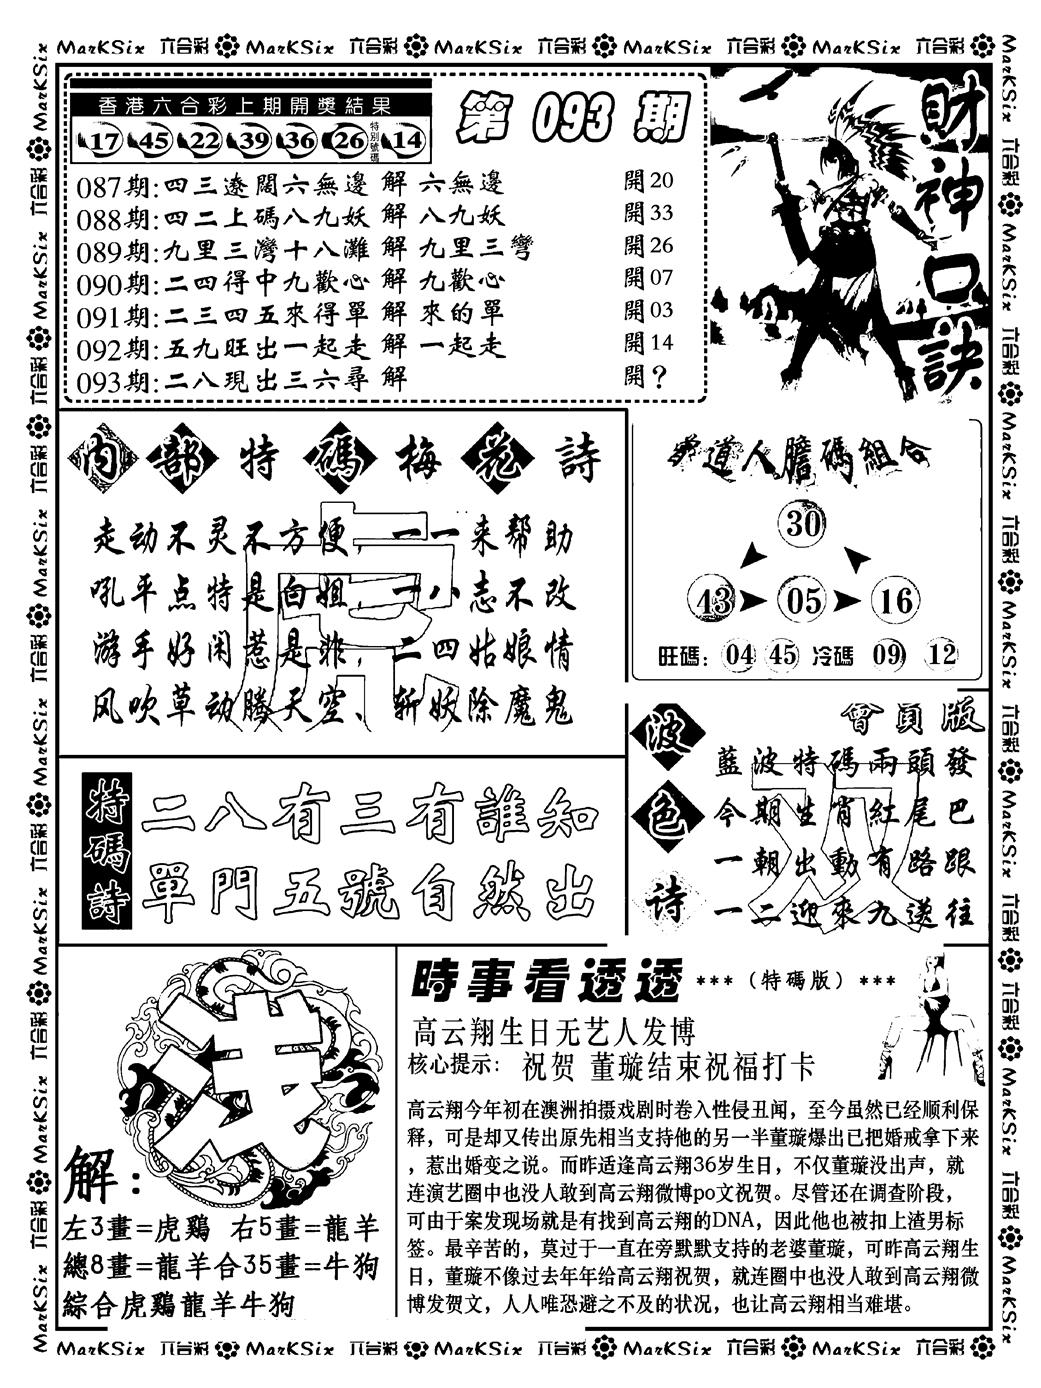 MarKSix 六合彩 MarKSix 六合彩 MarKSix 六合彩 MarKSix 六合彩 MarKSix 六合彩
香港六合彩上期開獎結果
17 45 22 39 36 26 特別號碼 14
第 093 期
087期:四三遼闊六無邊 解 六無邊 開20
088期:四二上碼八九妖 解 八九妖 開33
089期:九里三灣十八灘 解 九里三彎 開26
090期:二四得中九歡心 解 九歡心 開07
091期:二三四五來得單 解 來的單 開03
092期:五九旺出一起走 解 一起走 開14
093期:二八現出三六尋 解 開?
財神口訣
內部特碼梅花詩
走动不灵不方便，一一来帮助
吼平点特是白姐，一八志不改
游手好闲惹是非，二四姑娘情
风吹草动腾天空、斩妖除魔鬼
虎
道人膽碼組合
30
43 05 16
旺碼: 04 45 冷碼 09 12
特碼詩
二八有三有誰知
單門五號自然出
波色诗
會員版
藍波特碼兩頭發
今期生肖紅尾巴
一朝出動有路跟
一二迎來九送往
双
浅
解:
左3畫=虎鷄 右5畫=龍羊
總8畫=龍羊合35畫=牛狗
綜合虎鷄龍羊牛狗
時事看透透 ***（特碼版）***
高云翔生日无艺人发博
核心提示: 祝贺 董璇结束祝福打卡
高云翔今年初在澳洲拍摄戏剧时卷入性侵丑闻，至今虽然已经顺利保
释，可是却又传出原先相当支持他的另一半董璇爆出已把婚戒拿下来
，惹出婚变之说。而昨适逢高云翔36岁生日，不仅董璇没出声，就
连演艺圈中也没人敢到高云翔微博po文祝贺。尽管还在调查阶段，
可由于案发现场就是有找到高云翔的DNA，因此他也被扣上渣男标
签。最辛苦的，莫过于一直在旁默默支持的老婆董璇，可昨高云翔生
日，董璇不像过去年年给高云翔祝贺，就连圈中也没人敢到高云翔微
博发贺文，人人唯恐避之不及的状况，也让高云翔相当难堪。
MarKSix 六合彩 MarKSix 六合彩 MarKSix 六合彩 MarKSix 六合彩 MarKSix 六合彩